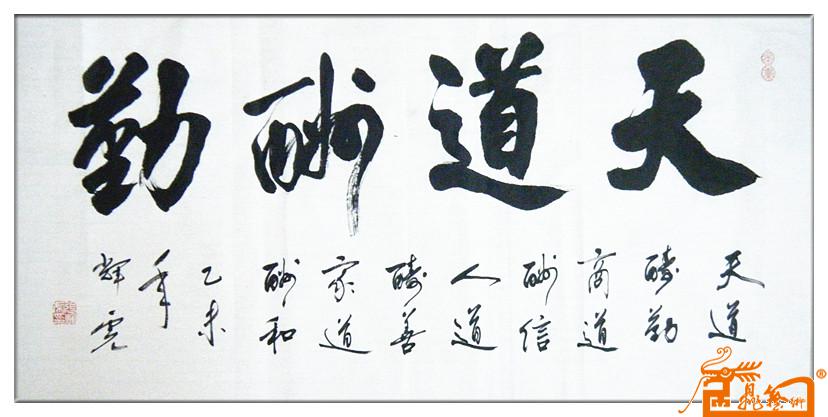 天道酬勤
天道
酬勤
商道
酬信
人道
酬善
家道
酬和
乙未
年
辉虎